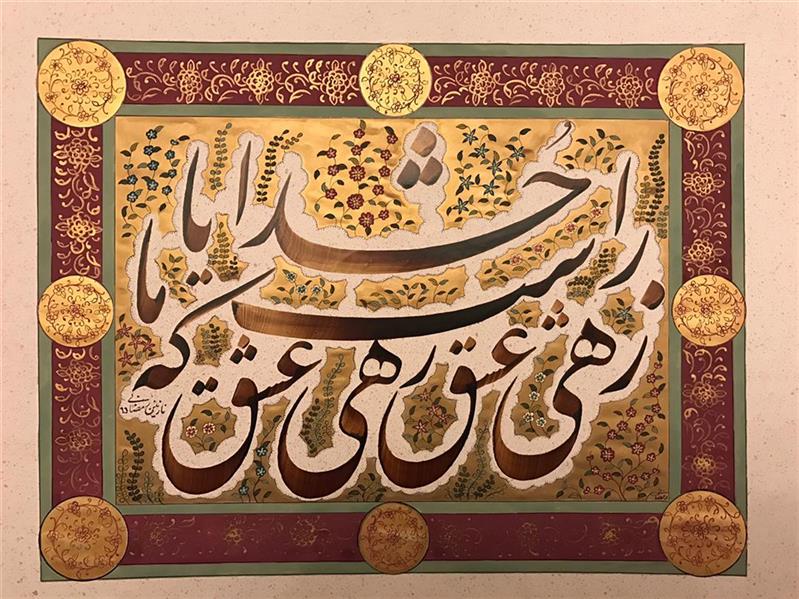 زهی عشق زهی عشق که
ما راست خدایا
نازنین رمضانی